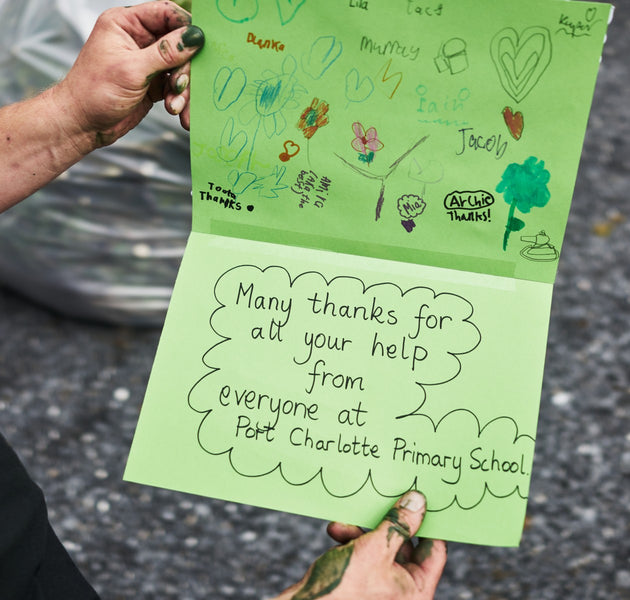 Lila
Kuyper
Murray
Iain
Jacob
Thanks
Mia
Archie
Thanks!
Many thanks for
all your help
from
everyone at
Port Charlotte Primary School.